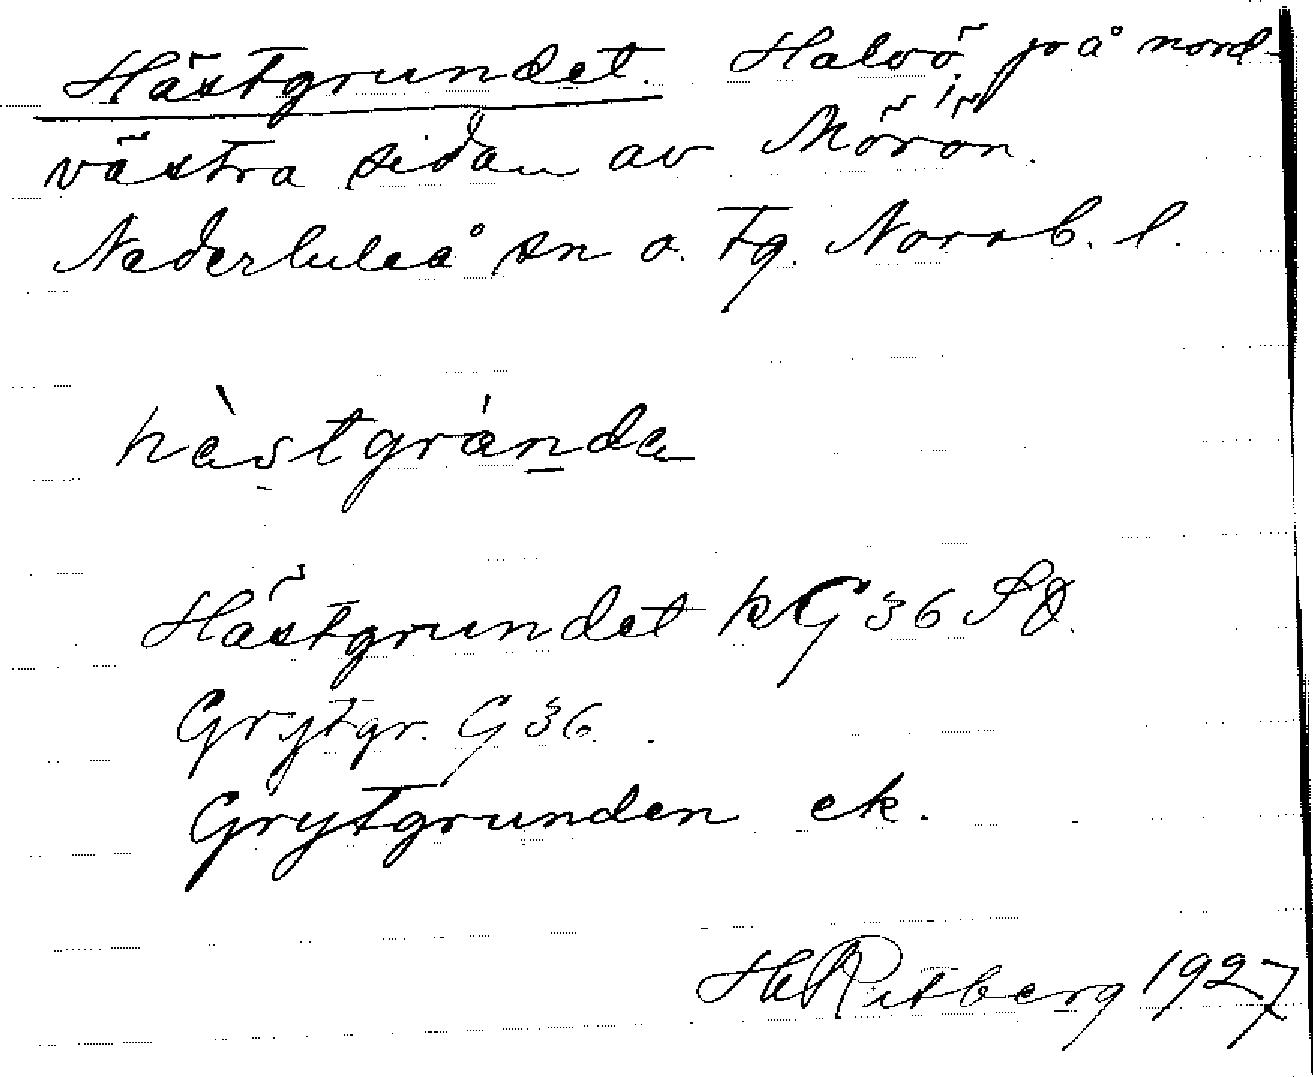 Hästgrundet. Halvö på nord-
västra sidan av Mörön.
Nederluleå sn o. tg. Norrb. l.
hàstgránda
Hästgrundet kG 36 SO.
Grytgr. G 36.
Grytgrunden ek.
H Ritberg 1927